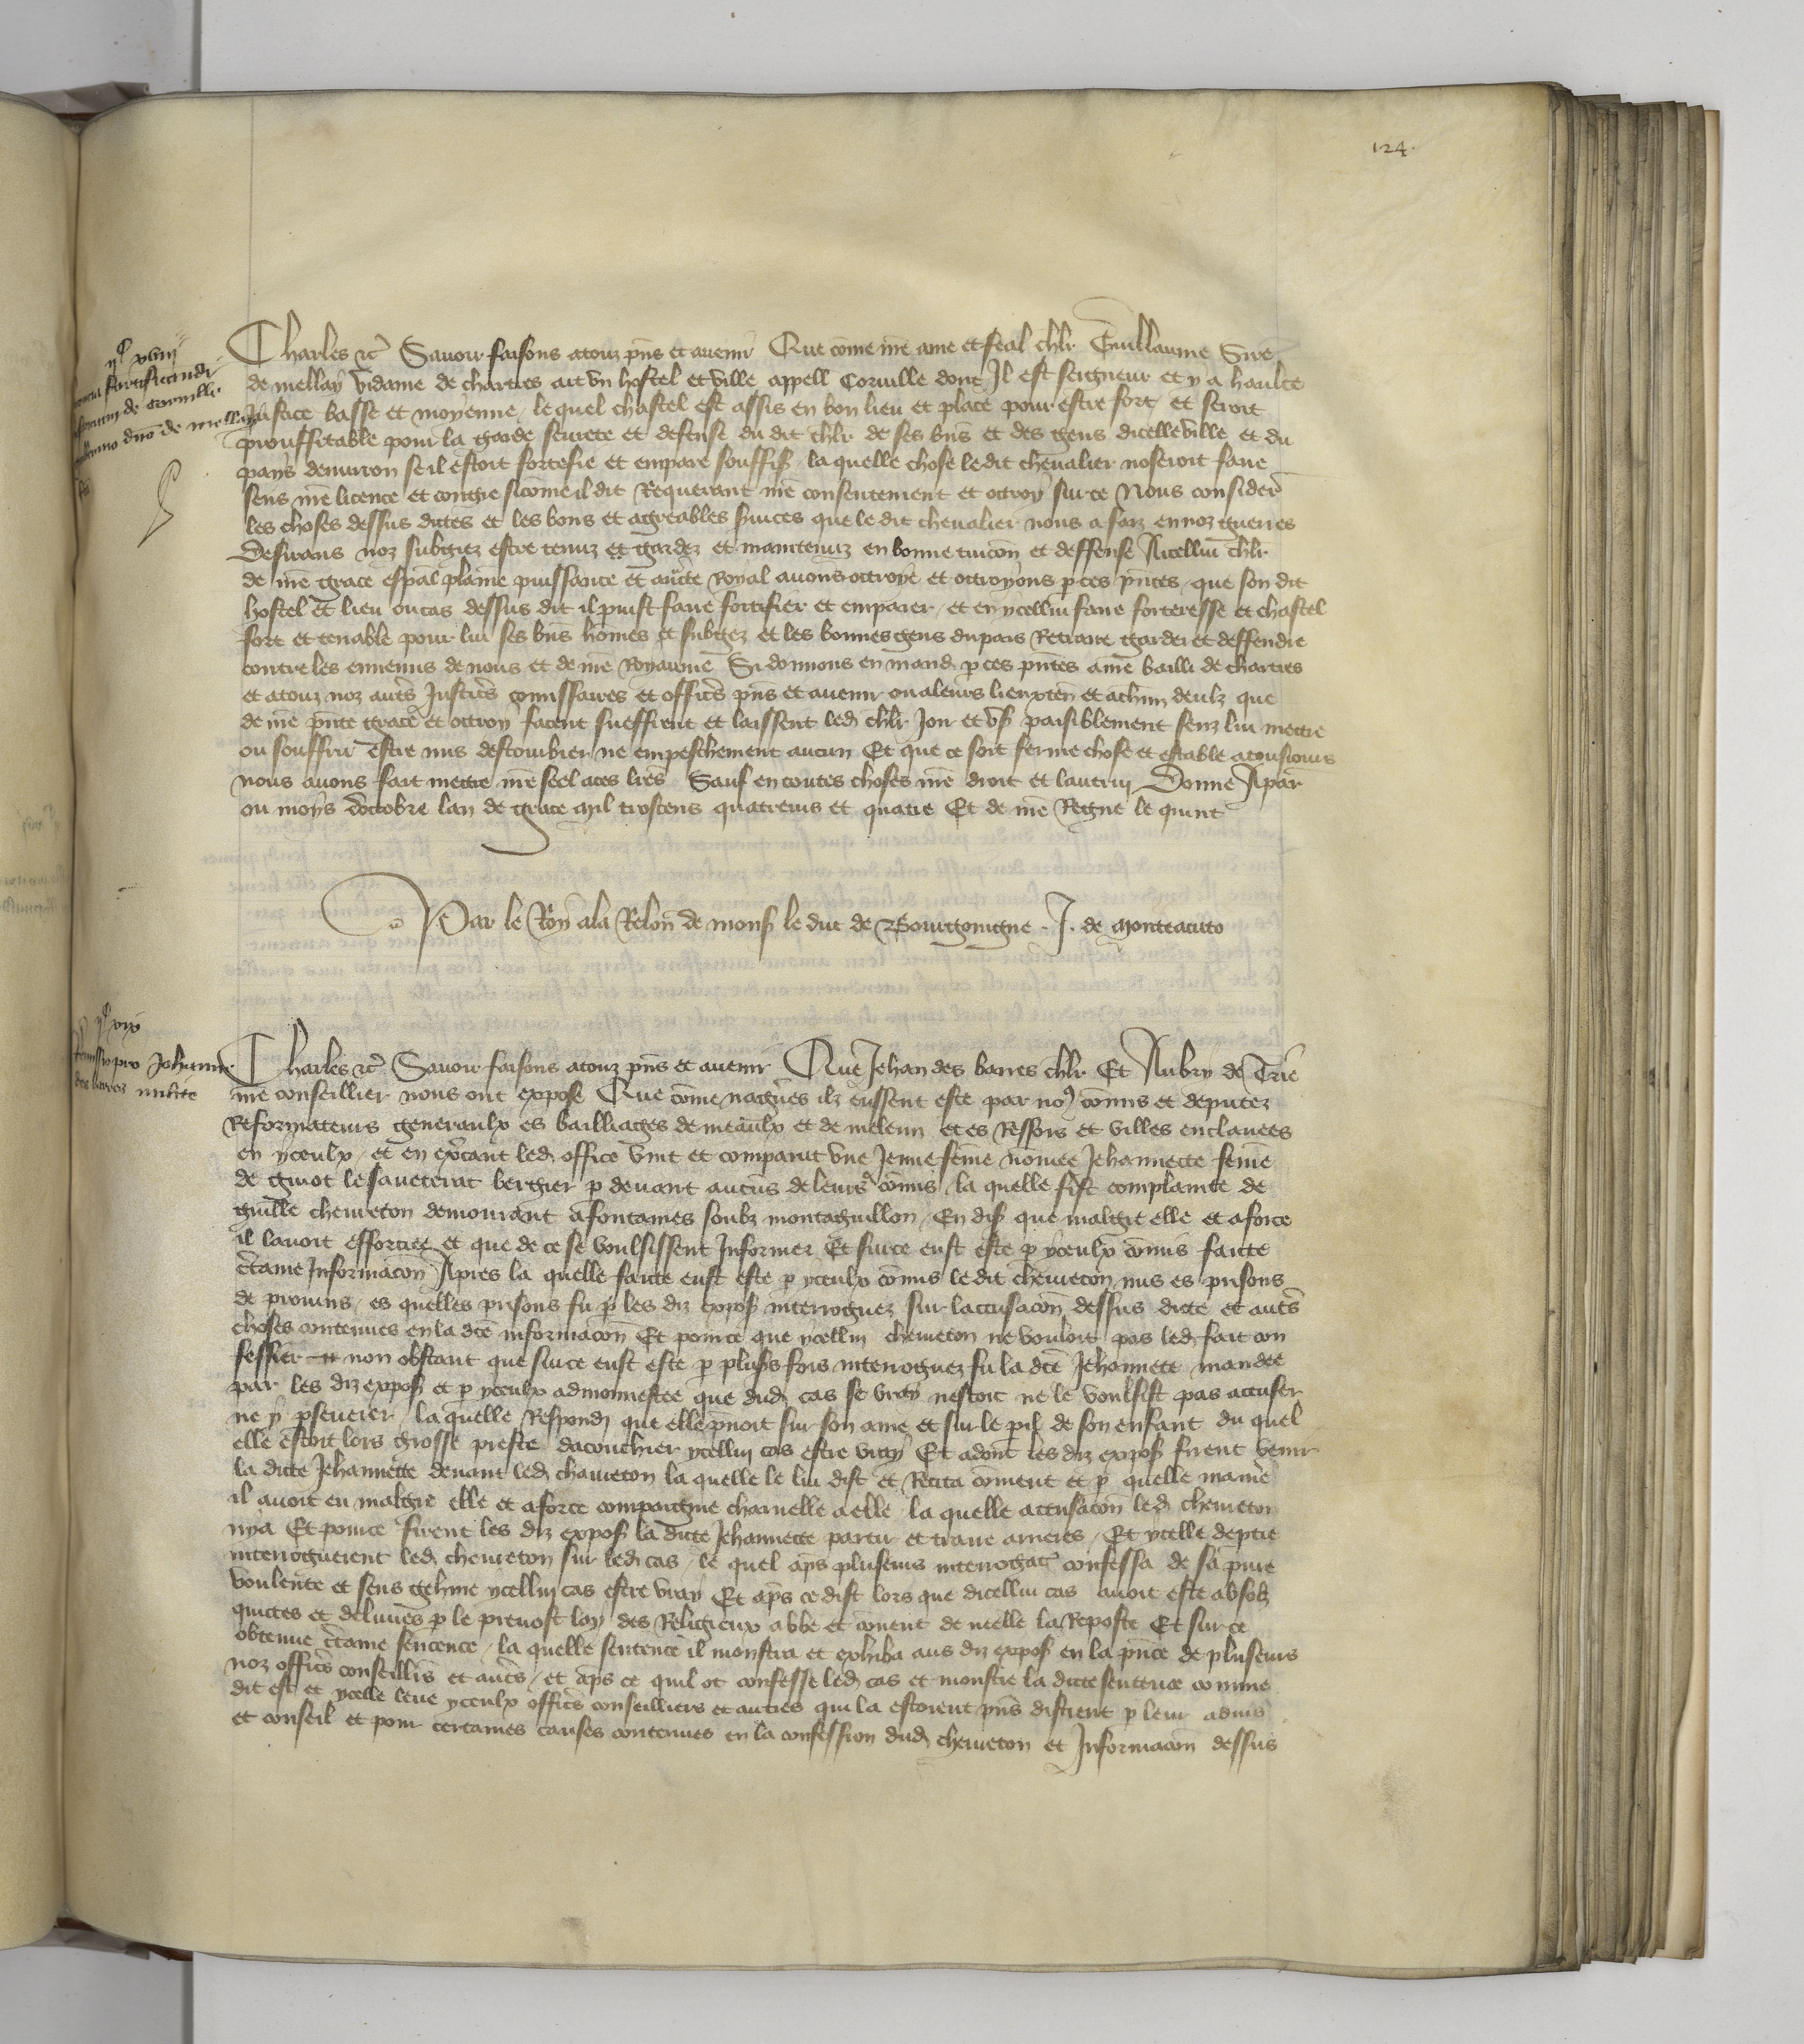 124.
Charles etc Savoir faisons atouz pn̄s et avenir Que com̄e nr̄e ame et feal chlr̄ Guillaume Sire
de mellay vidame de chartres ait vn hostel et ville appell Corville dont Il est seigneur et y a haulte
Justice basse et moyenne / le quel chastel est assis en bon lieu et place pour estre fort / et seroit
prouffitable pour la garde seurete et defense du dit chlr̄ de ses biēs et des gens dicelle ville et du
pays denuiron se il estoit fortefie et empare souffis / la quelle chose le dit cheualier noseroit faire
sens nr̄e licence et congie sicom̄e il dit Requerant nr̄e consentement et octroy sur ce Nous considerˉ
les choses dessus dictes et les bons et agreables s̄uices que le dit cheualier nous a faiz en noz guerres
Desirans noz subgiez estre tenuz et gardez et maintenuz en bonne tuicōn et deffense Aicellui chlr̄
de nr̄e grace esp̄al plaine puissance et auct̄e Royal auons octroye et octroyons p ces pn̄tes / que son dit
hostel et lieu ou cas dessus dit il puist faire fortifier et emparer / et en ycellui faire forteresse et chastel
fort et tenable pour lui ses biēs hom̄es et subgez et les bonnes gens du pais Retraire garder et deffendre
contre les ennemis de nous et de nr̄e Royaume Si donnons en mand p ces pn̄tes a nr̄e bailli de chartres
et atouz noz aut̄s Justic̄s com̄issaires et offic̄s pn̄s et avenir ou aleurs lieuxten̄ et achun deulx que
de nr̄e pn̄te grace et octroy facent sueffrent et laissent led chlr̄ Joir et vs̄ paisiblement senz lui mettre
ou souffrir estre mis destourbier ne empeschement aucun Et que ce soit ferme chose et estable atousiours
nous auons fait mettre nr̄e seel a ces lr̄es Sauf en toutes choses nr̄e droit et lautruy Donne Aparˉ
ou moys doctobre lan de grace mil troscens quatreuis et quatre Et de nr̄e Regne le quint
Par le Roy ala Relon̄ de mons le duc de Bourgoingne . J. de monteacuto
Johanne
des barres milite
Charles etc Savoir faisons atouz pn̄s et avenir Que Jehan des barres chlr̄ Et Aubry de Trie
nr̄e conseillier nous ont expose Que com̄e nagūes ilz eussent este par no9 com̄is et deputez
Reformateurs generaulx es bailliages de meaulx et de meleun et es Ressors et villes enclauees
en yceulx / et en exc̄ant led office vint et comparut vne Jeune fem̄e nom̄ee Jehannette fem̄e
de guiot le saueterat bergier p deuant aucūs de leurs com̄is / la quelle fist complainte de
guille cheureton demourant a fontaines soubz montaguillon / En dis que malgre elle et a force
il lauoit efforciee et que de ce se voulsissent Informer Et sur ce eust este p yceulx com̄is faicte
c̄taine Informacōn Apres la quelle faicte eust este p yceulx com̄is le dit cheureton mis es prisons
de prouins / es quelles prisons fu p les diz expos interroguez sur lactusacōn dessus dicte et aut̄s
choses contenues en la dc̄e informacōn Et pource que ycellui cheureton ne vouloit pas led fait con
fesser non obstant que sur ce eust este p plus̄s fois interroguez fu la dc̄e Jehannette mandee
par les diz expos et p yceulx admonnestee que dud cas se vray nestoit ne le voulsist pas accuser
ne y pseuerer / la quelle Respond que elle p̄noit sur son ame et sur le pil de son enfant du quel
elle estoit lors grosse preste dacouchier ycellui cas estre vray Et adont les diz expos firent venir
la dicte Jehannette deuant led chaureton la quelle le lui dist et Recita com̄ent et p quelle manie
il auoit eu malgre elle et aforce compaignie charnelle a elle / la quelle accusacōn led cheureton
nya Et pource firent les diz expos la dicte Jehannette partir et traire arrieres / Et ycelle deptie
interroguerent led cheureton sur led cas / le quel ap̄s plusieurs interrogatˉ confessa de sa pure
voulente et sens gehine ycellui cas estre vray Et ap̄s ce dist lors que dicellui cas auoit este absolz
quictes et deliurēs p le preuost lay des Religieux abbe et couent de nelle la Reposte Et sur ce
obtenue c̄taine sentence / la quelle sentence il monstra et exhiba aus diz expos en la pn̄ce de plusieurs
noz offic̄s conseillis et aut̄s / et ap̄s ce quil ot confesse led cas et monstre la dicte sentence comme
dit est et ycelle leue yceulx offic̄s conseilliers et autres qui la estoient pn̄s distrent p leur aduis
et conseil et pour certaines causes contenues en la confession dud cheureton et Informacōn dessus